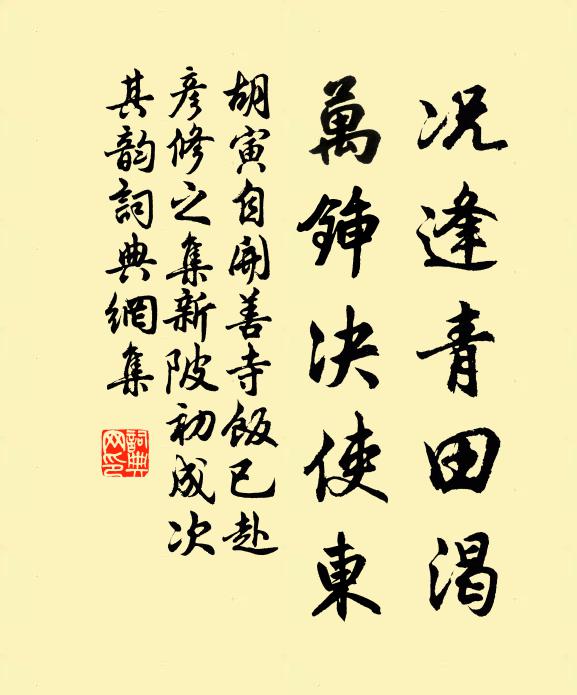 况逢青田渴
萬鍤決使東
胡寅自開善寺飯已赴
彦修之集新陂初成次
其韵詞典網集
詞典网印